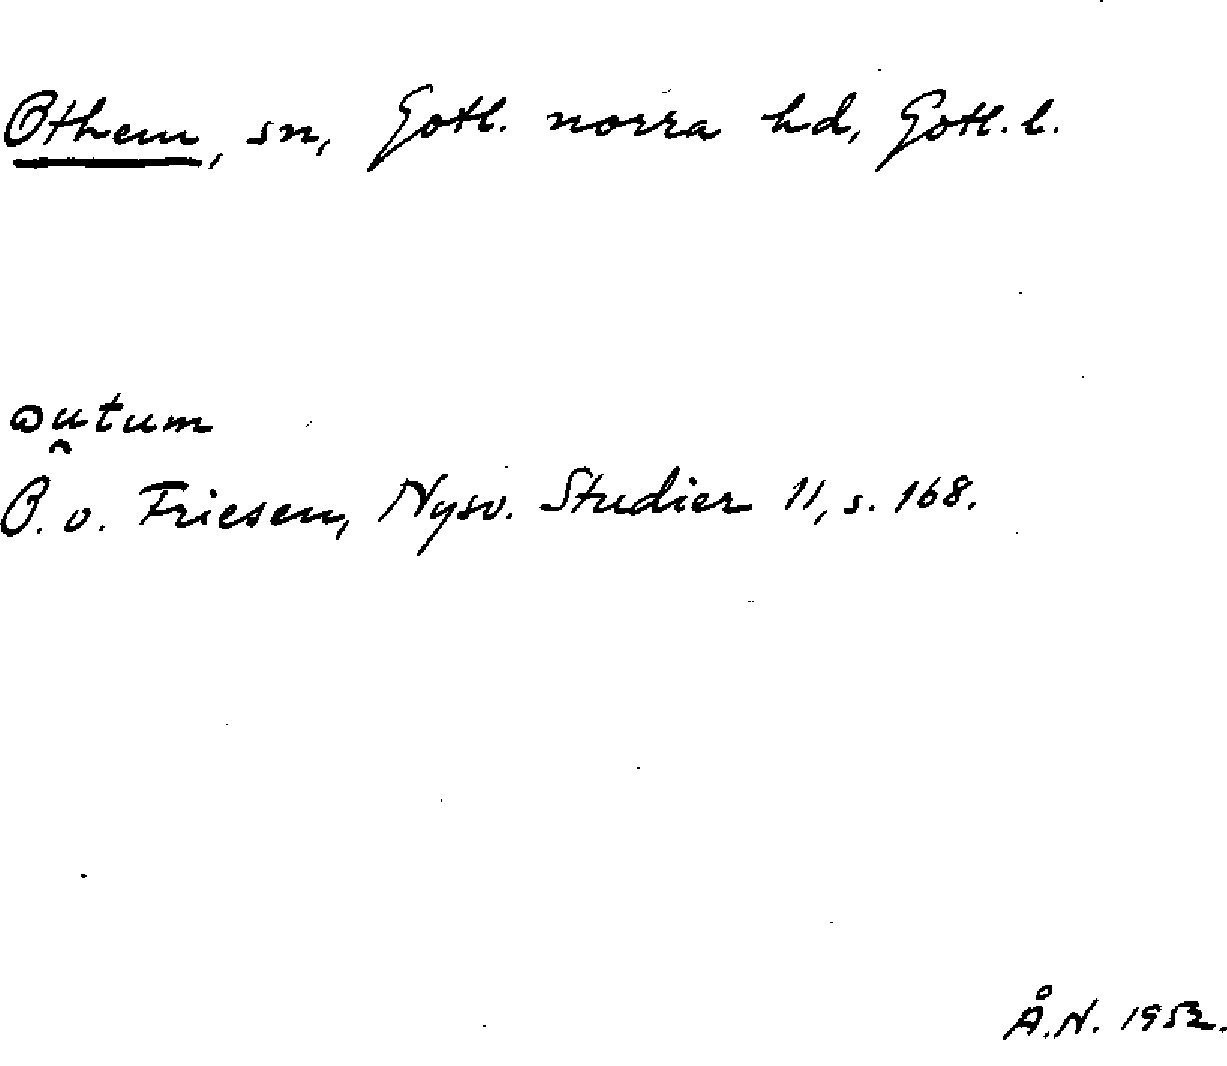 Othem, sn, Gotl. norra hd, Gotl. l.
ꞷu̯tum
O. v. Friesen, Nysv. Studier 11, s. 168.
Å.N. 1952.